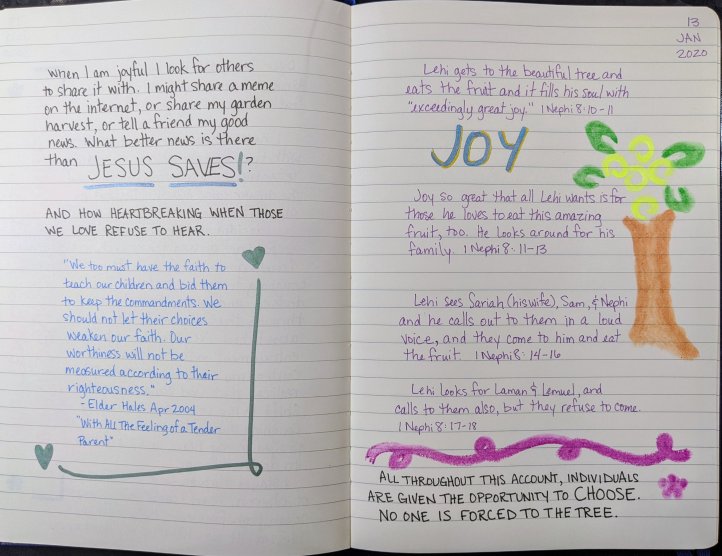 When I am joyful I look for others
to share it with. I might share a meme
on the internet, or share my garden
harvest, or tell a friend my good
news. What better news is there
than JESUS SAVES!?
AND HOW HEARTBREAKING WHEN THOSE
WE LOVE REFUSE TO HEAR.
"We too must have the faith to
teach our children and bid them
to keep the commandments. We
should not let their choices
weaken our faith. Our
worthiness will not be
measured according to their
righteousness."
- Elder Hales Apr 2004
"With All The Feeling of a Tender
Parent"
13
JAN
2020
Lehi gets to the beautiful tree and
eats the fruit and it fills his soul with
"exceedingly great joy." 1 Nephi 8:10-11
JOY
Joy so great that all Lehi wants is for
those he loves to eat this amazing
fruit, too. He looks around for his
family. 1 Nephi 8:11-13
Lehi sees Sariah (his wife), Sam, & Nephi
and he calls out to them in a loud
voice, and they come to him and eat
the fruit. 1 Nephi 8:14-16
Lehi looks for Laman & Lemuel, and
calls to them also, but they refuse to come.
1 Nephi 8:17-18
ALL THROUGHOUT THIS ACCOUNT, INDIVIDUALS
ARE GIVEN THE OPPORTUNITY TO CHOOSE.
NO ONE IS FORCED TO THE TREE.